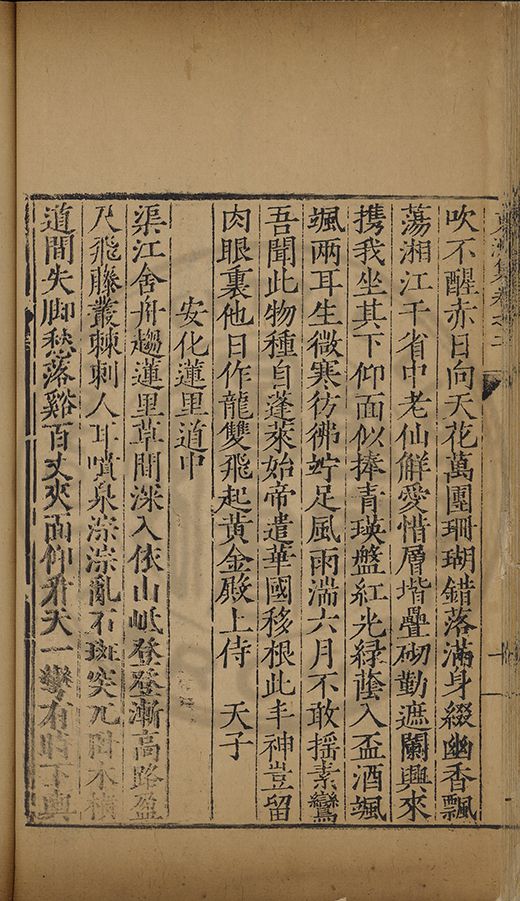 卷之二
吹不醒赤日向天花萬團珊瑚錯落滿身綴幽香飄
蕩湘江干省中老仙鮮愛惜層堦疊砌勤遮闌興來
携我坐其下仰面似捧青瑛盤紅光綠蔭入盃酒颯
颯兩耳生微寒彷彿竚足風雨湍六月不敢揺素鸞
吾聞此物種自蓬萊始帝遣華國移根此丰神豈留
肉眼裏他日作龍雙飛起黃金殿上侍 天子
安化蓮里道中
渠江舍舟趨蓮里草間深入依山岻登登漸高路盈
尺飛藤叢棘刺人耳噴泉淙淙亂石斑突兀木橫
道間失脚愁落谿百丈夾面仰看天一彎有時下輿